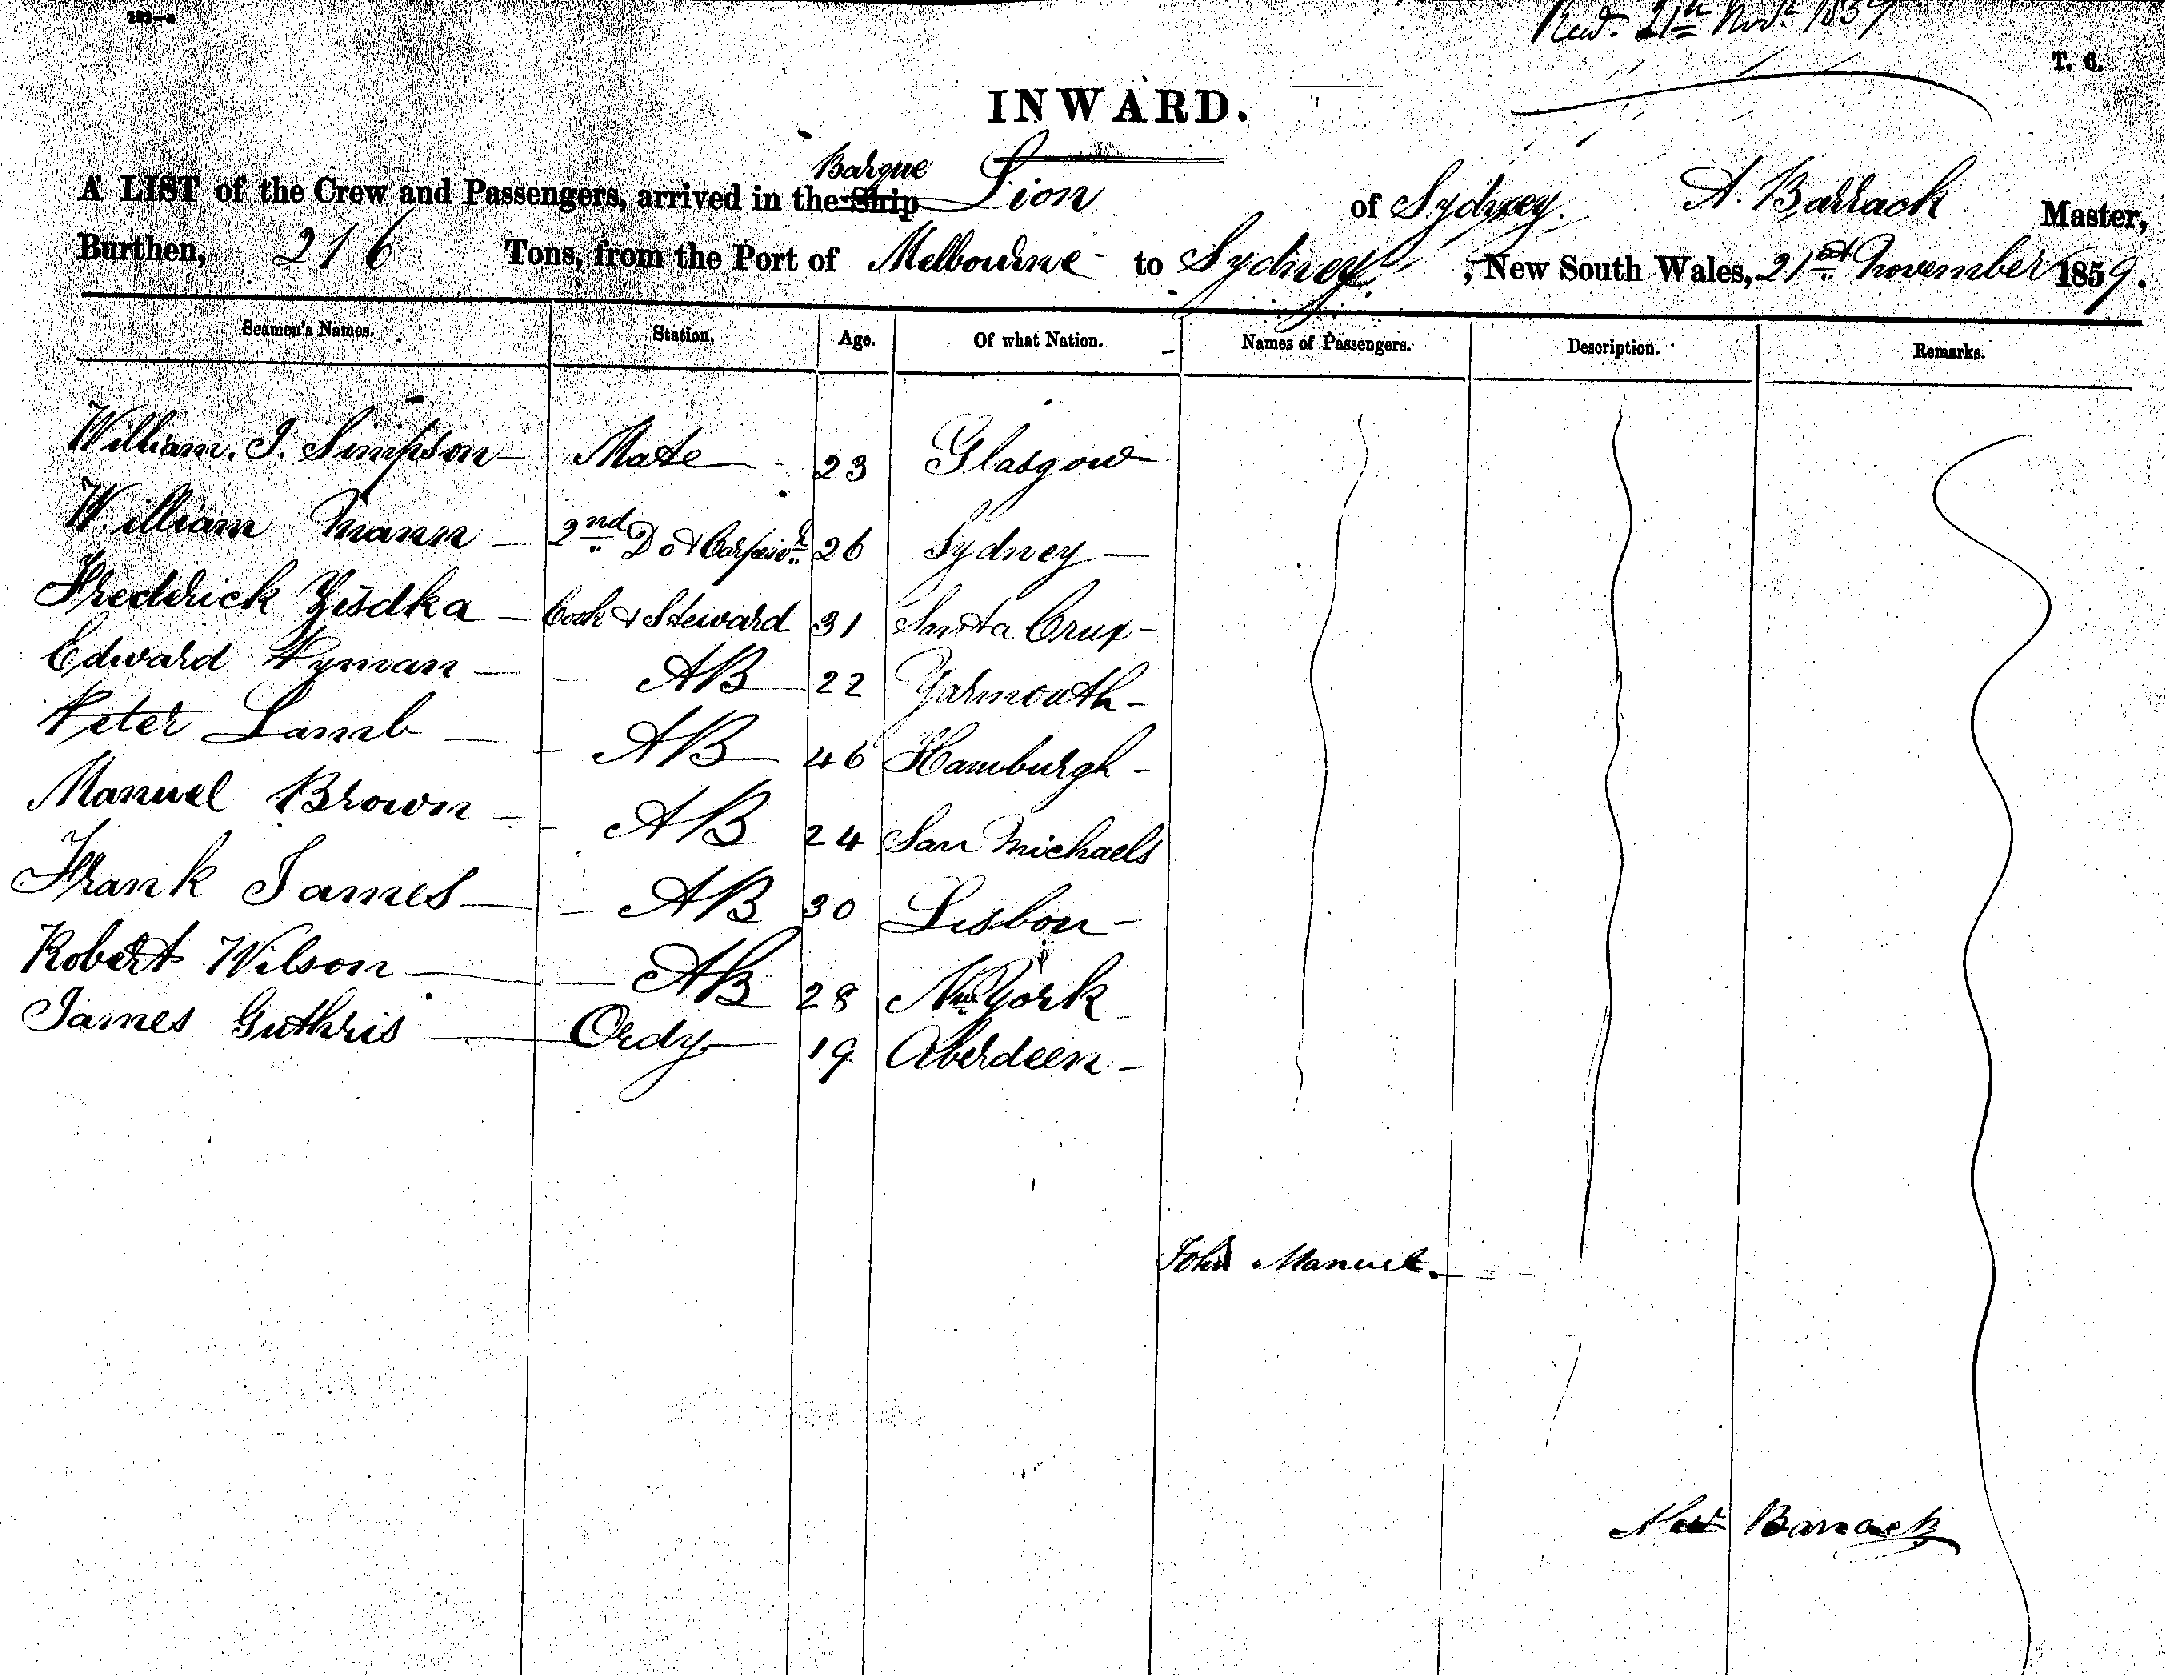 Recd. 21st Novr. 1859
T. 6.
INWARD.
A LIST of the Crew and Passengers, arrived in the Ship Barque Lion of Sydney. A. Barrack Master,
Burthen, 216 Tons, from the Port of Melbourne to Sydney, New South Wales, 21st November 1859.
Seamen's Names. Station. Age. Of what Nation. Names of Passengers. Description. Remarks.
William. J. Simpson Mate 23 Glasgow
William Mann 2nd Do & Carpentr 26 Sydney
Frederick Zisdka Cook & Steward 31 Santa Crux
Edward Pyman AB 22 Yarmouth
Peter Lamb AB 46 Hamburgh
Manuel Brown AB 24 San Michaels
Frank James AB 30 Lisbon
Robert Wilson AB 28 New York
James Guthris Ordy 19 Aberdeen
John Manuel.
Barrack